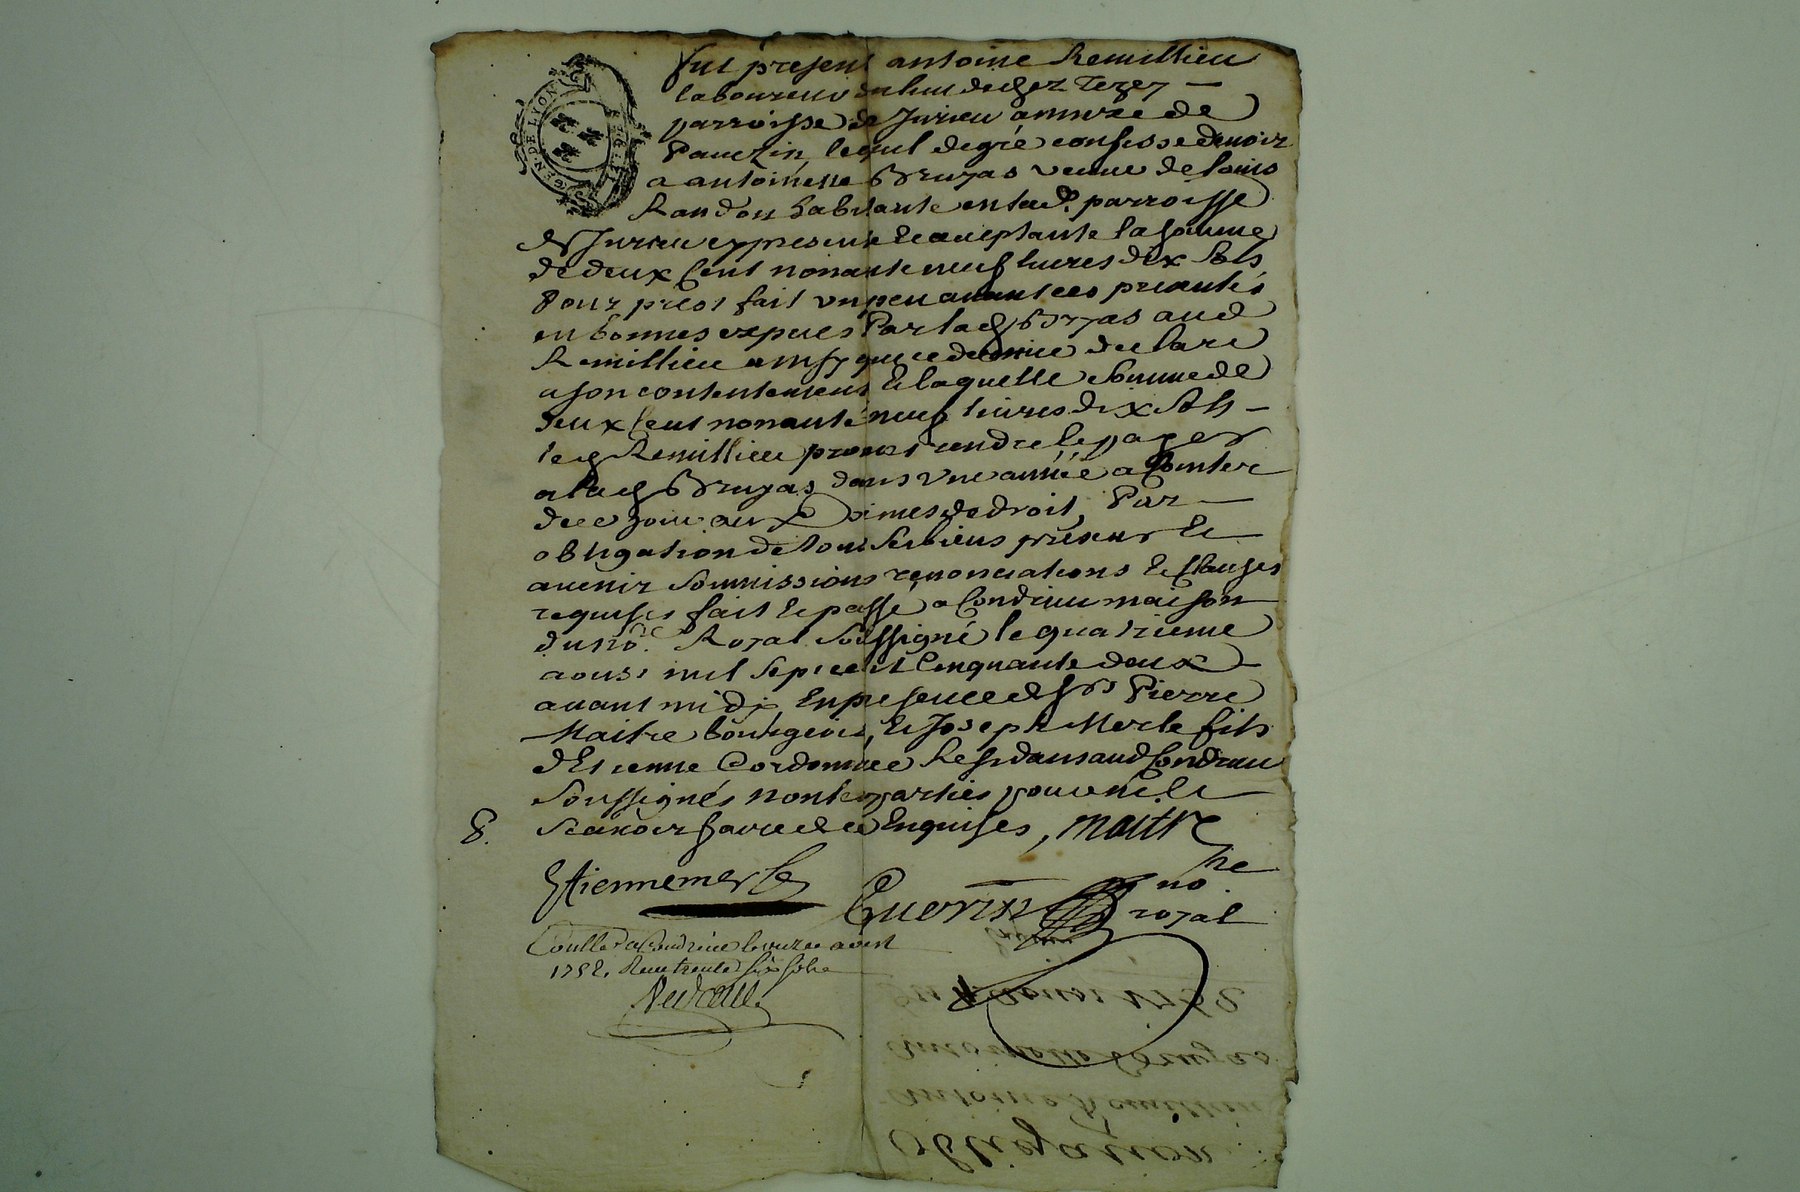 GEN. DE LYON
fut present antoine Remillieu
laboureur du lieu de chez
parroisse de Jurieu annexe de
Pavezin lequel de gré confesse devoir
a antoinette Bruyas veuve de louis
Randon habitante en lad. parroisse
de Jurieu presente et acceptante la somme
de deux Cent nonante neuf livres dix sols
pour prest fait un peu avant ces presantes
en bonnes especes Par lad Bruyas aud
Remillieu ainsy que ce dernier declare
a son contentement et laquelle somme de
deux Cent nonante neuf livres dix sols
led Remillieu promet rendre et payer
a lad Bruyas dans une année a Compter
de ce jour aux peines de droit, Par
obligation de tous ses biens presens et
avenir soumissions renonciations et clauses
requises fait et passé a Condrieu maison
du no.re Royal soussigné le quatrieme
aoust mil sept cent Cinquante deux
avant midy En presence de srs Pierre
Maitre bourgeois, et Joseph Merle fils
d'Etienne Cordonnier Residans aud Condrieu
soussignés non les parties pour ne le
scavoir faire de ce Enquises, maitre
Etienne merle
Guerin no.re royal
Conllé a Condrieu le onze aoust
1752. Recu trente six sols
Obligation
antoine Remillieu
antoinette Bruyas
Du 4 aoust 1752